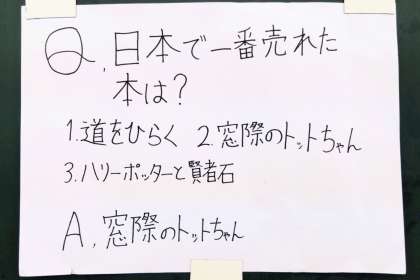 Q. 日本で一番売れた
本は?
1.道をひらく 2.窓際のトットちゃん
3.ハリーポッターと賢者石
A. 窓際のトットちゃん